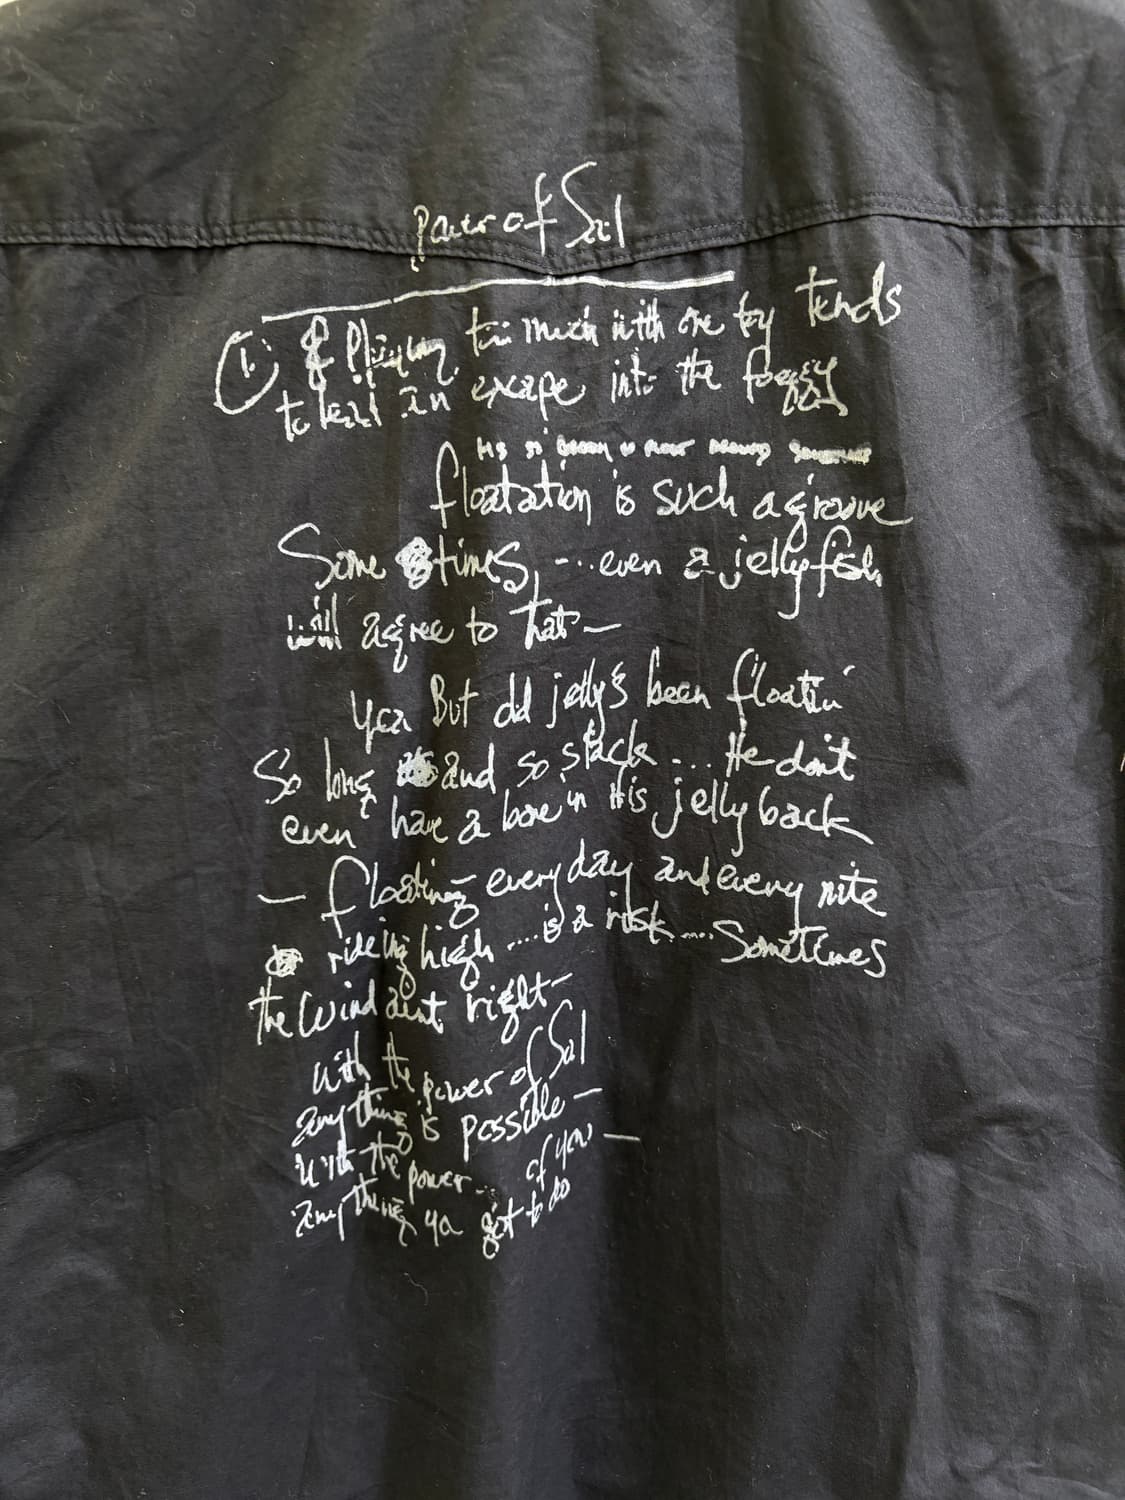 Power of Soul
1. Playing too much with one toy tends
to lead an escape into the foggy
floatation is such a groove
Some times, ... even a jelly fish
will agree to that —
yea But old jelly's been floatin'
So long and so slack .... He don't
even have a bone in His jelly back
— floating every day and every nite
rideing high .... is a risk .... Sometimes
the Wind aint right —
With the power of Soul
anything is possible —
with the power ... of you —
anything ya got to do